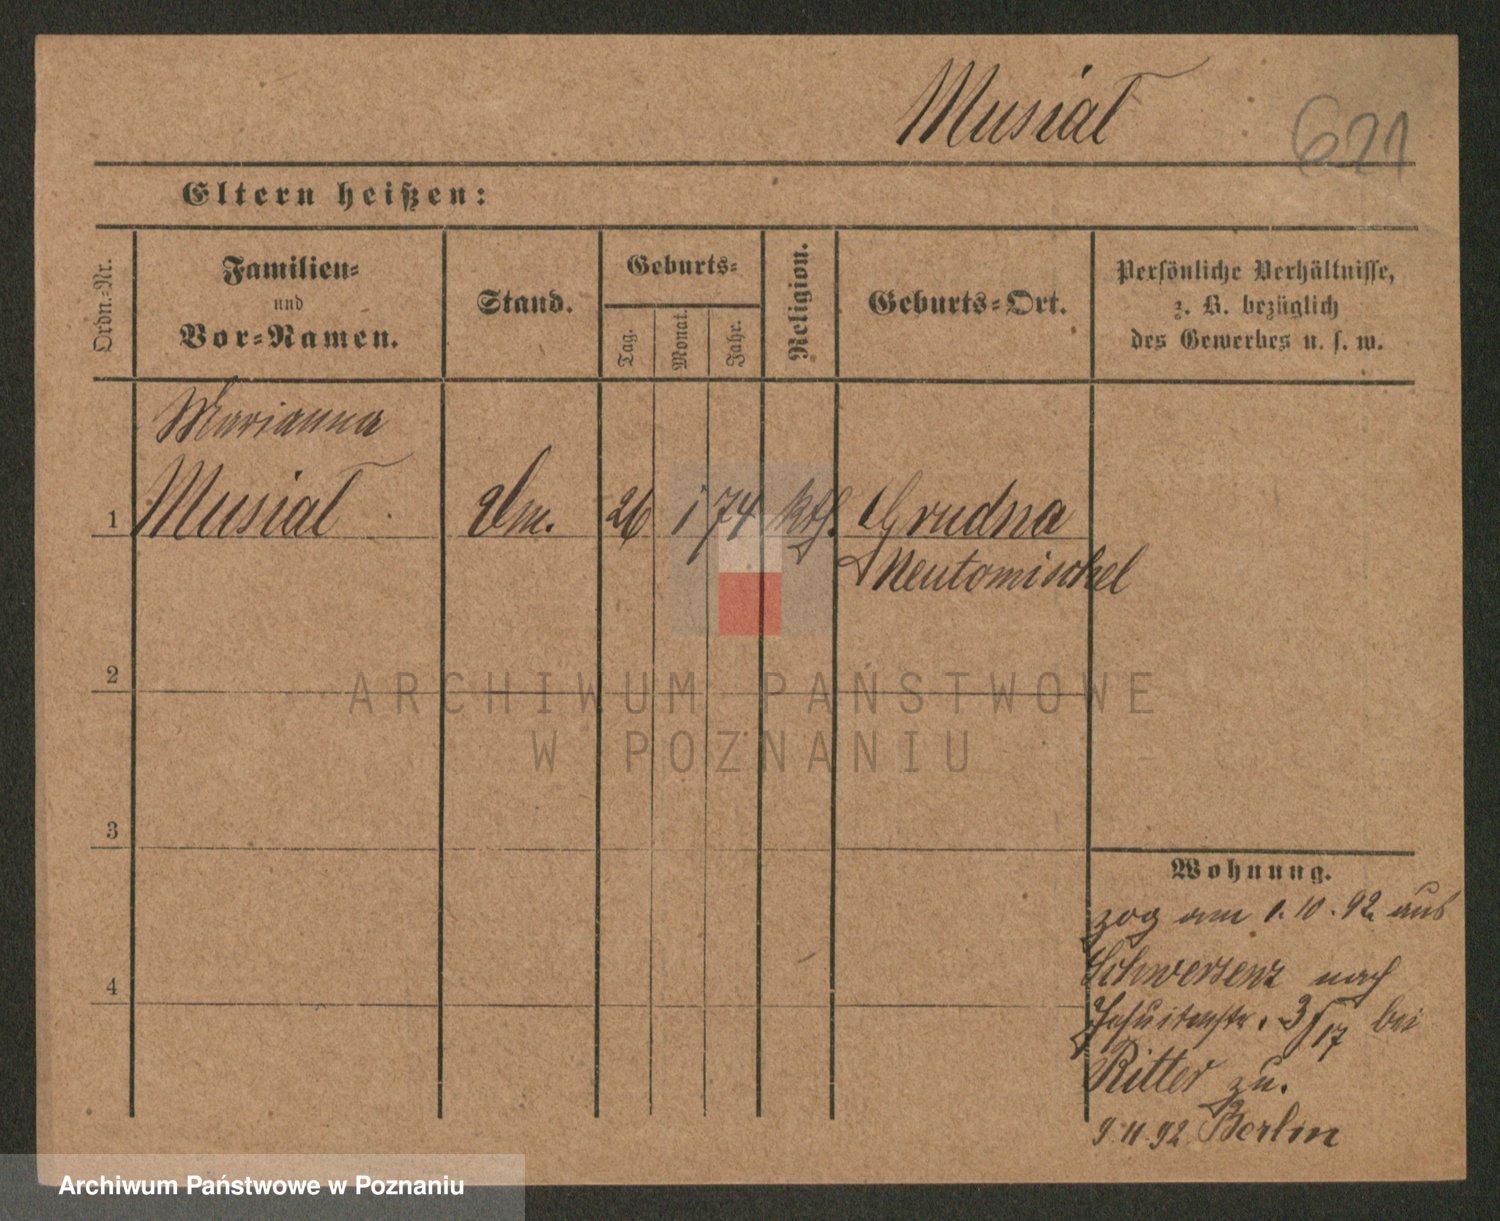 Musiał
621
Eltern heißen:
Ordn.-Nr.
Familien-
und
Vor-Namen.
Stand.
Geburts-
Tag.
Monat.
Jahr.
Religion.
Geburts-Ort.
Persönliche Verhältnisse,
z. B. bezüglich
des Gewerbes u. s. w.
Marianna
1 Musiał 26 1 74 kth. Grudna
Neutomischel
2
3
4
Wohnung.
zog am 1.10.92 aus
Schwersenz nach
Jesuitenstr. 3/17 bei
Ritter zu.
9.11.92 Berlin
ARCHIWUM PAŃSTWOWE
W POZNANIU
Archiwum Państwowe w Poznaniu